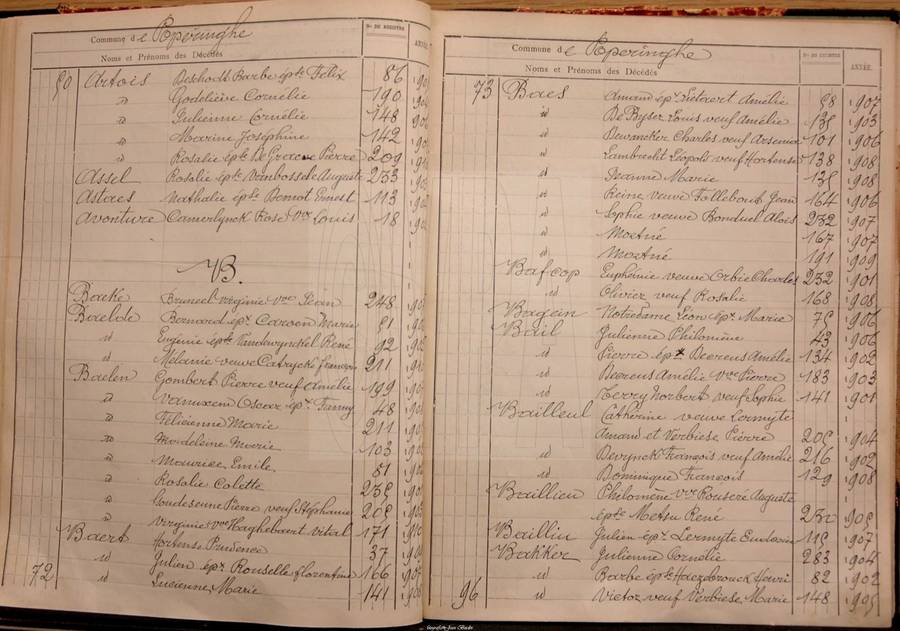 Commune de Poperinghe
Nos DE REGISTRE
ANNÉE
Noms et Prénoms des Décédés
50 Artois Deschodt Barbe épte Félix 86
id Godelieve Cornélie 190
id Julienne Cornélie 148
id Marine Joséphine 142
id Rosalie épte De Graeve Pierre 209
Assel Rosalie épte Vanbossele Auguste 233
Astaes Nathalie épte Benot Ernest 113
Avonture Camerlynck Rose Vve Louis 18
B.
Baeke Bruneel Virginie Vve Jean 248
Baelde Bernard ép. Caroen Marie 51
id Eugénie épte Vandwynckel René 92
id Mélanie veuve Catryck François 211
Baelen Gombert Pierre veuf Amélie 199
id Vanuxem Oscar ép. Fanny 48
id Félicienne Marie 211
id Madeleine Marie 103
id Maurice Emile 81
id Rosalie Colette 235
id Goudesenne Pierre veuf Stéphanie 205
id Virginie Vve Haghebaert Vital 171
Baert Hortense Prudence 37
id Julien ép. Rouselle Florentine 166
72 id Lucienne Marie 141
Commune de Poperinghe
Nos DE REGISTRE
ANNÉE.
Noms et Prénoms des Décédés
73 Baes Amand ép. Lietaert Amélie 58 907
id De Ryser Louis veuf Amélie 135 903
id Dewancker Charles veuf Arsenia 101 906
id Lambrecht Léopold veuf Hortense 138 908
id Jeanne Marie 135 908
id Reine veuve Follebout Jean 164 906
id Sophie veuve Bonduel Aloïs 232 907
id Mortné 167 907
id Mortné 191 909
Bafcop Euphémie veuve Orbie Charles 232 901
id Olivier veuf Rosalie 168 908
Bagein Notredame Léon ép. Marie 75 906
Bail Julienne Philomène 43 906
id Pierre ép. Deereus Amélie 134 902
id Deereus Amélie Vve Pierre 183 903
id Terry Norbert veuf Sophie 141 901
Bailleul Catherine veuve Lermyte
Amand et Verbiese Pierre 205 904
id Devynck François veuf Amélie 216 902
id Dominique François 129 908
Baillieu Philomène Vve Rouseré Auguste
épte Metsu René 232 905
Baillin Julien ép. Lermyte Eudoxie 115 907
Bakker Julienne Cornélie 283 904
id Barbe épte Haezebrouck Henri 82 902
96 id Victor veuf Verbiese Marie 148 905